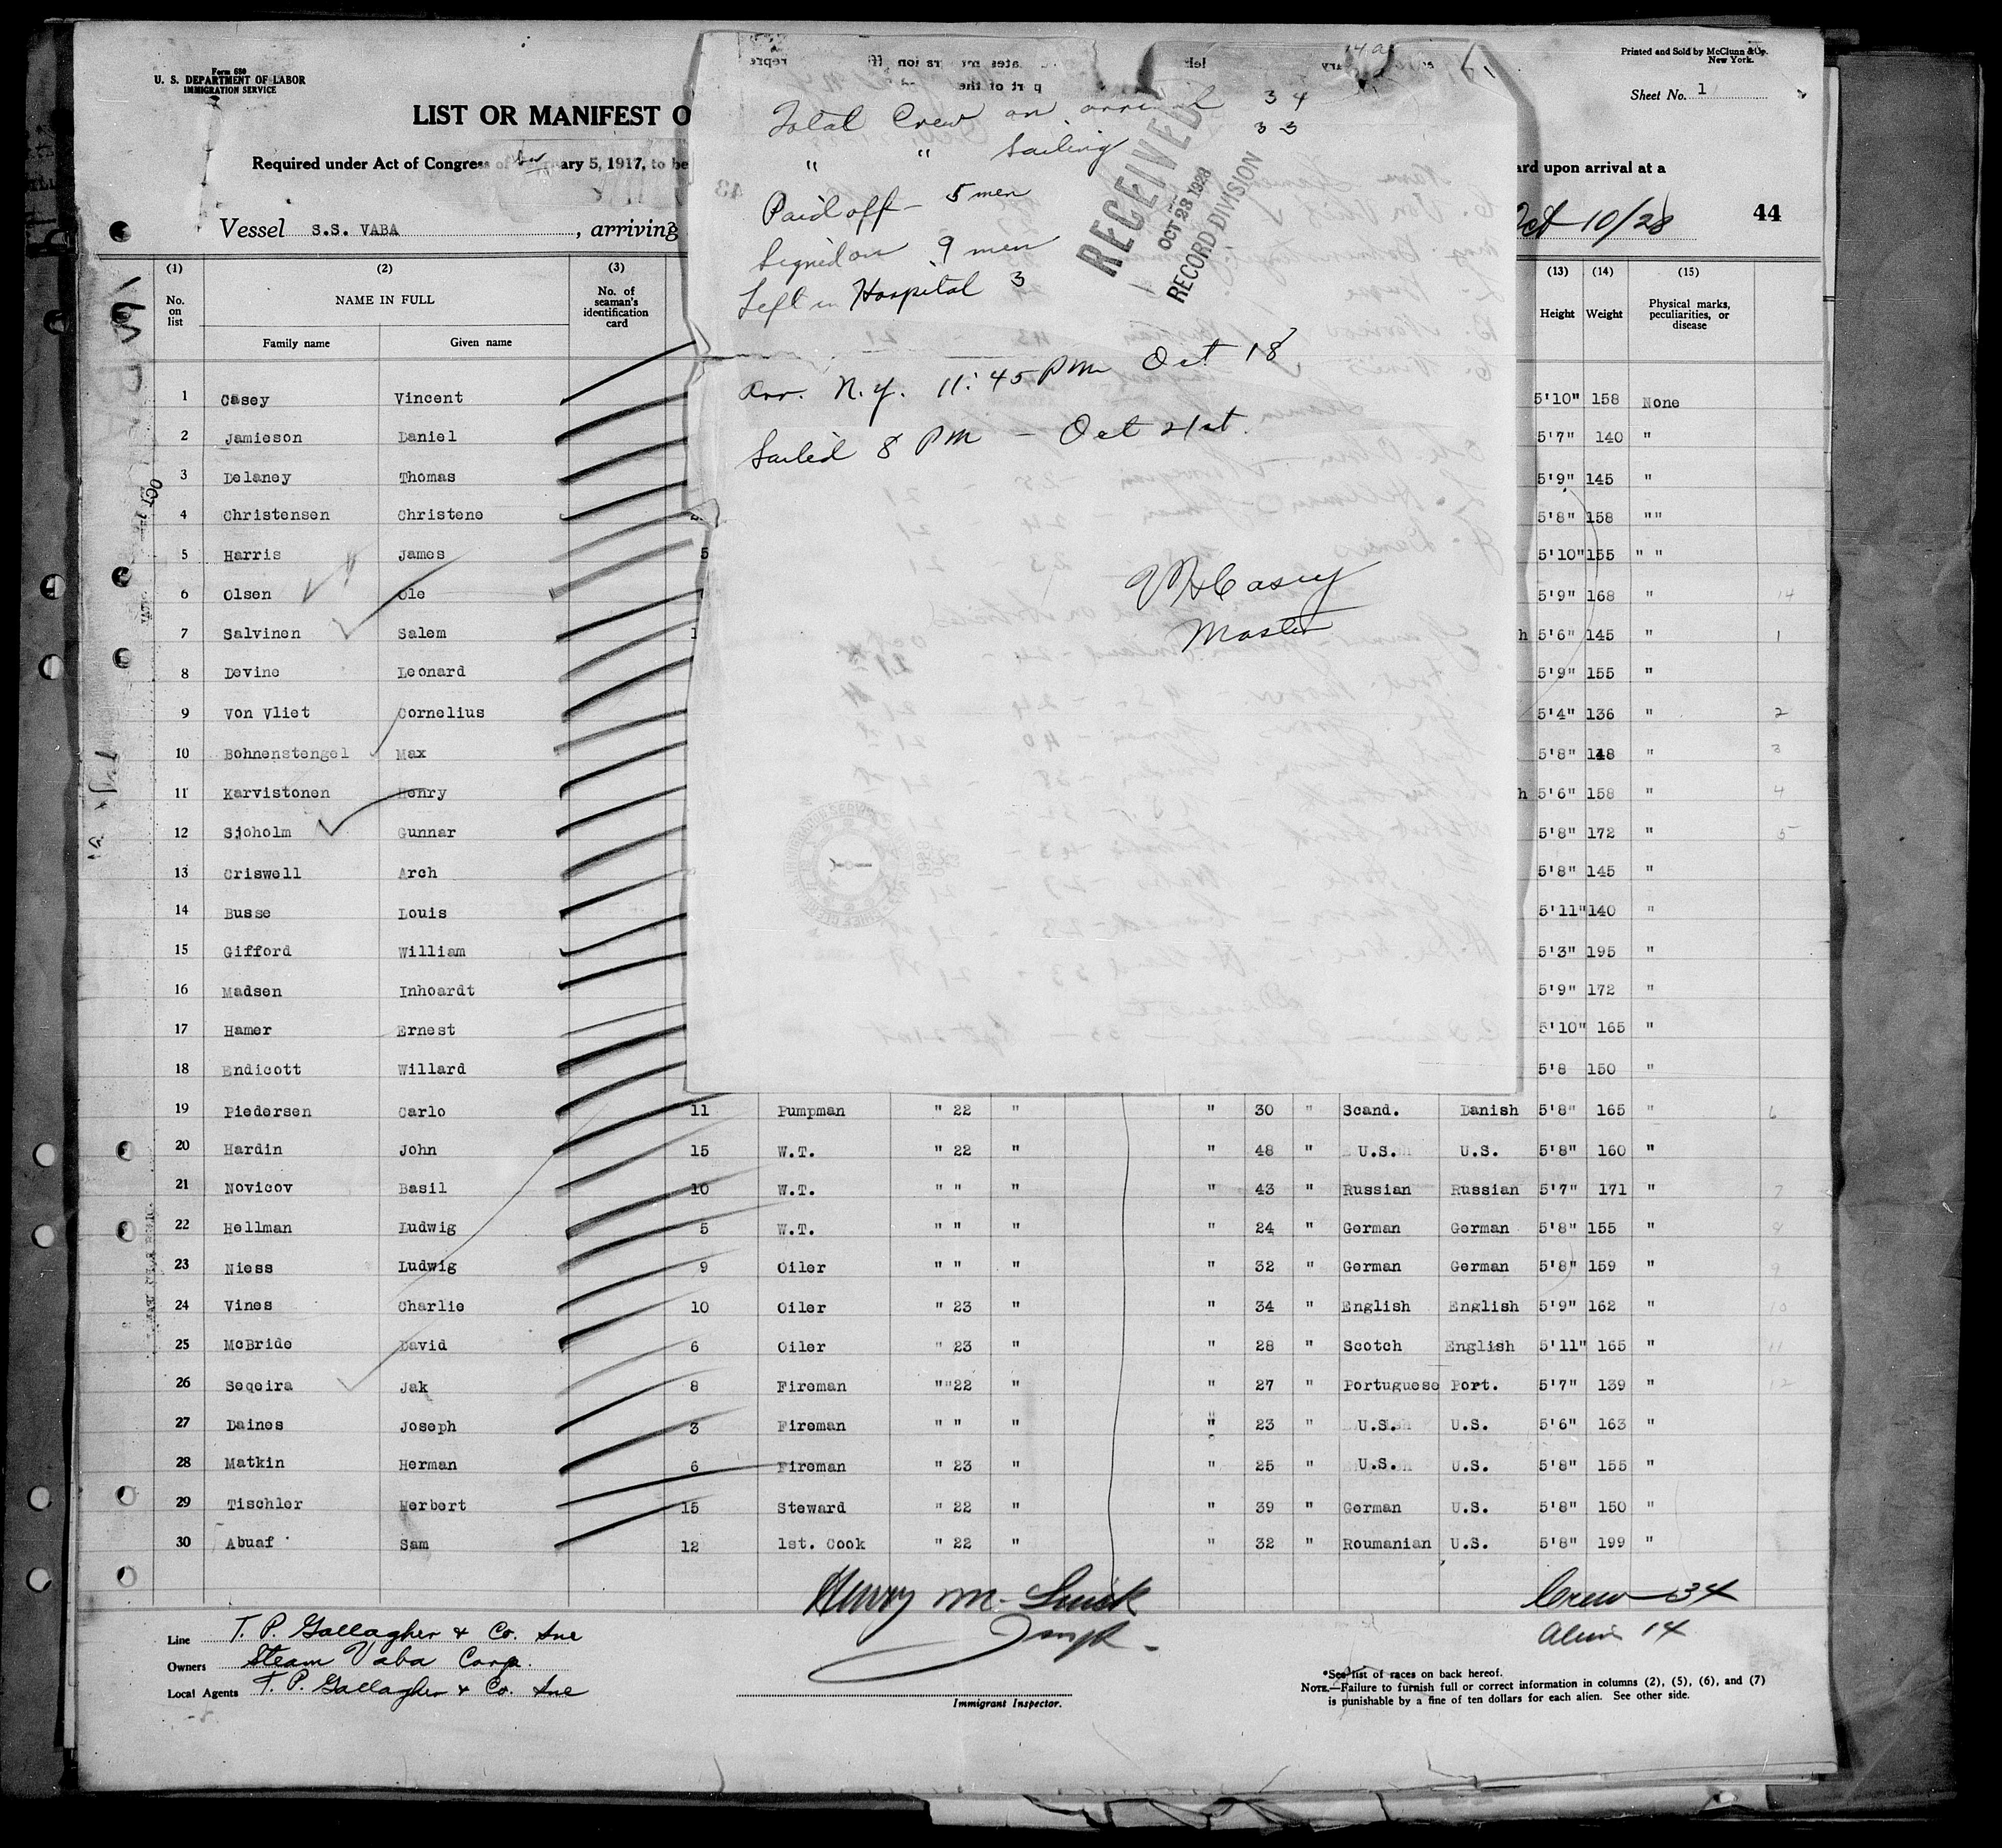 Form 680
U. S. DEPARTMENT OF LABOR
IMMIGRATION SERVICE
Printed and Sold by McClunn & Co.
New York.
Sheet No. 1
LIST OR MANIFEST O
Required under Act of Congress of February 5, 1917, to be
ard upon arrival at a
Vessel S.S. VABA, arriving
Oct 10/28
44
Total Crew on arrival 34
" " Sailing 33
Paid off - 5 men
Signed on 9 men
Left in Hospital 3
RECEIVED
OCT 23 1928
RECORD DIVISION
Arr. N.Y. 11:45 PM Oct 18
Sailed 8 PM - Oct 21st.
Casey
Master
(1) (2) (3) (13) (14) (15)
No. on list
NAME IN FULL
Family name Given name
No. of seaman's identification card
Height Weight Physical marks, peculiarities, or disease
1 Casey Vincent 5'10" 158 None
2 Jamieson Daniel 5'7" 140 "
3 Delaney Thomas 5'9" 145 "
4 Christensen Christene 5'8" 158 ""
5 Harris James 5 5'10" 155 " "
6 Olsen Ole 5'9" 168 " 14
7 Salvinen Salem 1 h 5'6" 145 " 1
8 Devine Leonard 5'9" 155 "
9 Von Vliet Cornelius 5'4" 136 " 2
10 Bohnenstengel Max 5'8" 148 " 3
11 Karvistonen Henry h 5'6" 158 " 4
12 Sjoholm Gunnar 5'8" 172 " 5
13 Criswell Arch 5'8" 145 "
14 Busse Louis 5'11" 140 "
15 Gifford William 5'3" 195 "
16 Madsen Inhoardt 5'9" 172 "
17 Hamer Ernest 5'10" 165 "
18 Endicott Willard 5'8 150 "
19 Piedersen Carlo 11 Pumpman " 22 " " 30 " Scand. Danish 5'8" 165 " 6
20 Hardin John 15 W.T. " 22 " " 48 " U.S. U.S. 5'8" 160 "
21 Novicov Basil 10 W.T. " " " " 43 " Russian Russian 5'7" 171 " 7
22 Hellman Ludwig 5 W.T. " " " " 24 " German German 5'8" 155 " 8
23 Niess Ludwig 9 Oiler " " " " 32 " German German 5'8" 159 " 9
24 Vines Charlie 10 Oiler " 23 " " 34 " English English 5'9" 162 " 10
25 McBride David 6 Oiler " 23 " " 28 " Scotch English 5'11" 165 " 11
26 Seqeira Jak 8 Fireman ""22 " " 27 " Portuguese Port. 5'7" 139 " 12
27 Daines Joseph 3 Fireman " " " " 23 " U.S. U.S. 5'6" 163 "
28 Matkin Herman 6 Fireman " 23 " " 25 " U.S. U.S. 5'8" 155 "
29 Tischler Herbert 15 Steward " 22 " " 39 " German U.S. 5'8" 150 "
30 Abuaf Sam 12 1st. Cook " 22 " " 32 " Roumanian U.S. 5'8" 199 "
Henry M.
Crew 34
Aliens 14
Line T. P. Gallagher & Co. Inc
Owners Steam Vaba Corp.
Local Agents T. P. Gallagher & Co. Inc
Immigrant Inspector.
*See list of races on back hereof.
NOTE.—Failure to furnish full or correct information in columns (2), (5), (6), and (7)
is punishable by a fine of ten dollars for each alien. See other side.